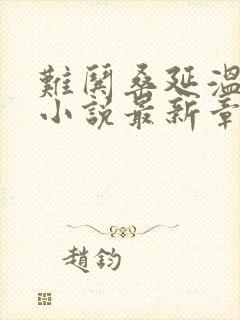 難閧桑延溫
小說最新章
趙鈞